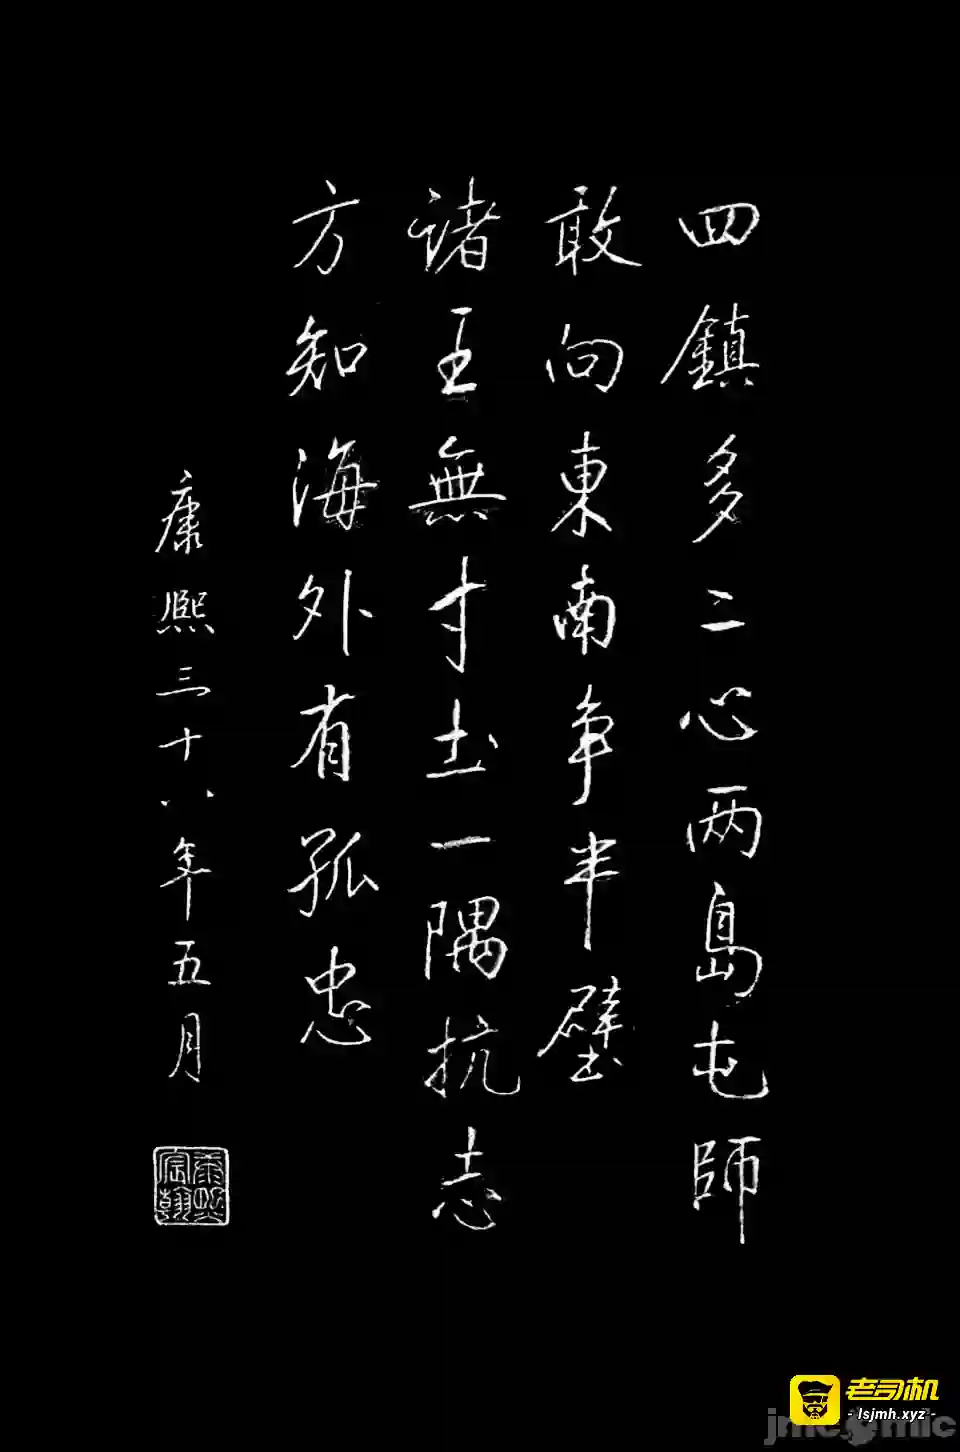 四鎮多二心两島屯師
敢向東南争半壁
諸王無寸土一隅抗志
方知海外有孤忠
康熙三十八年五月
康熙宸翰
老司机
- lsjmh.xyz -
jmcomic